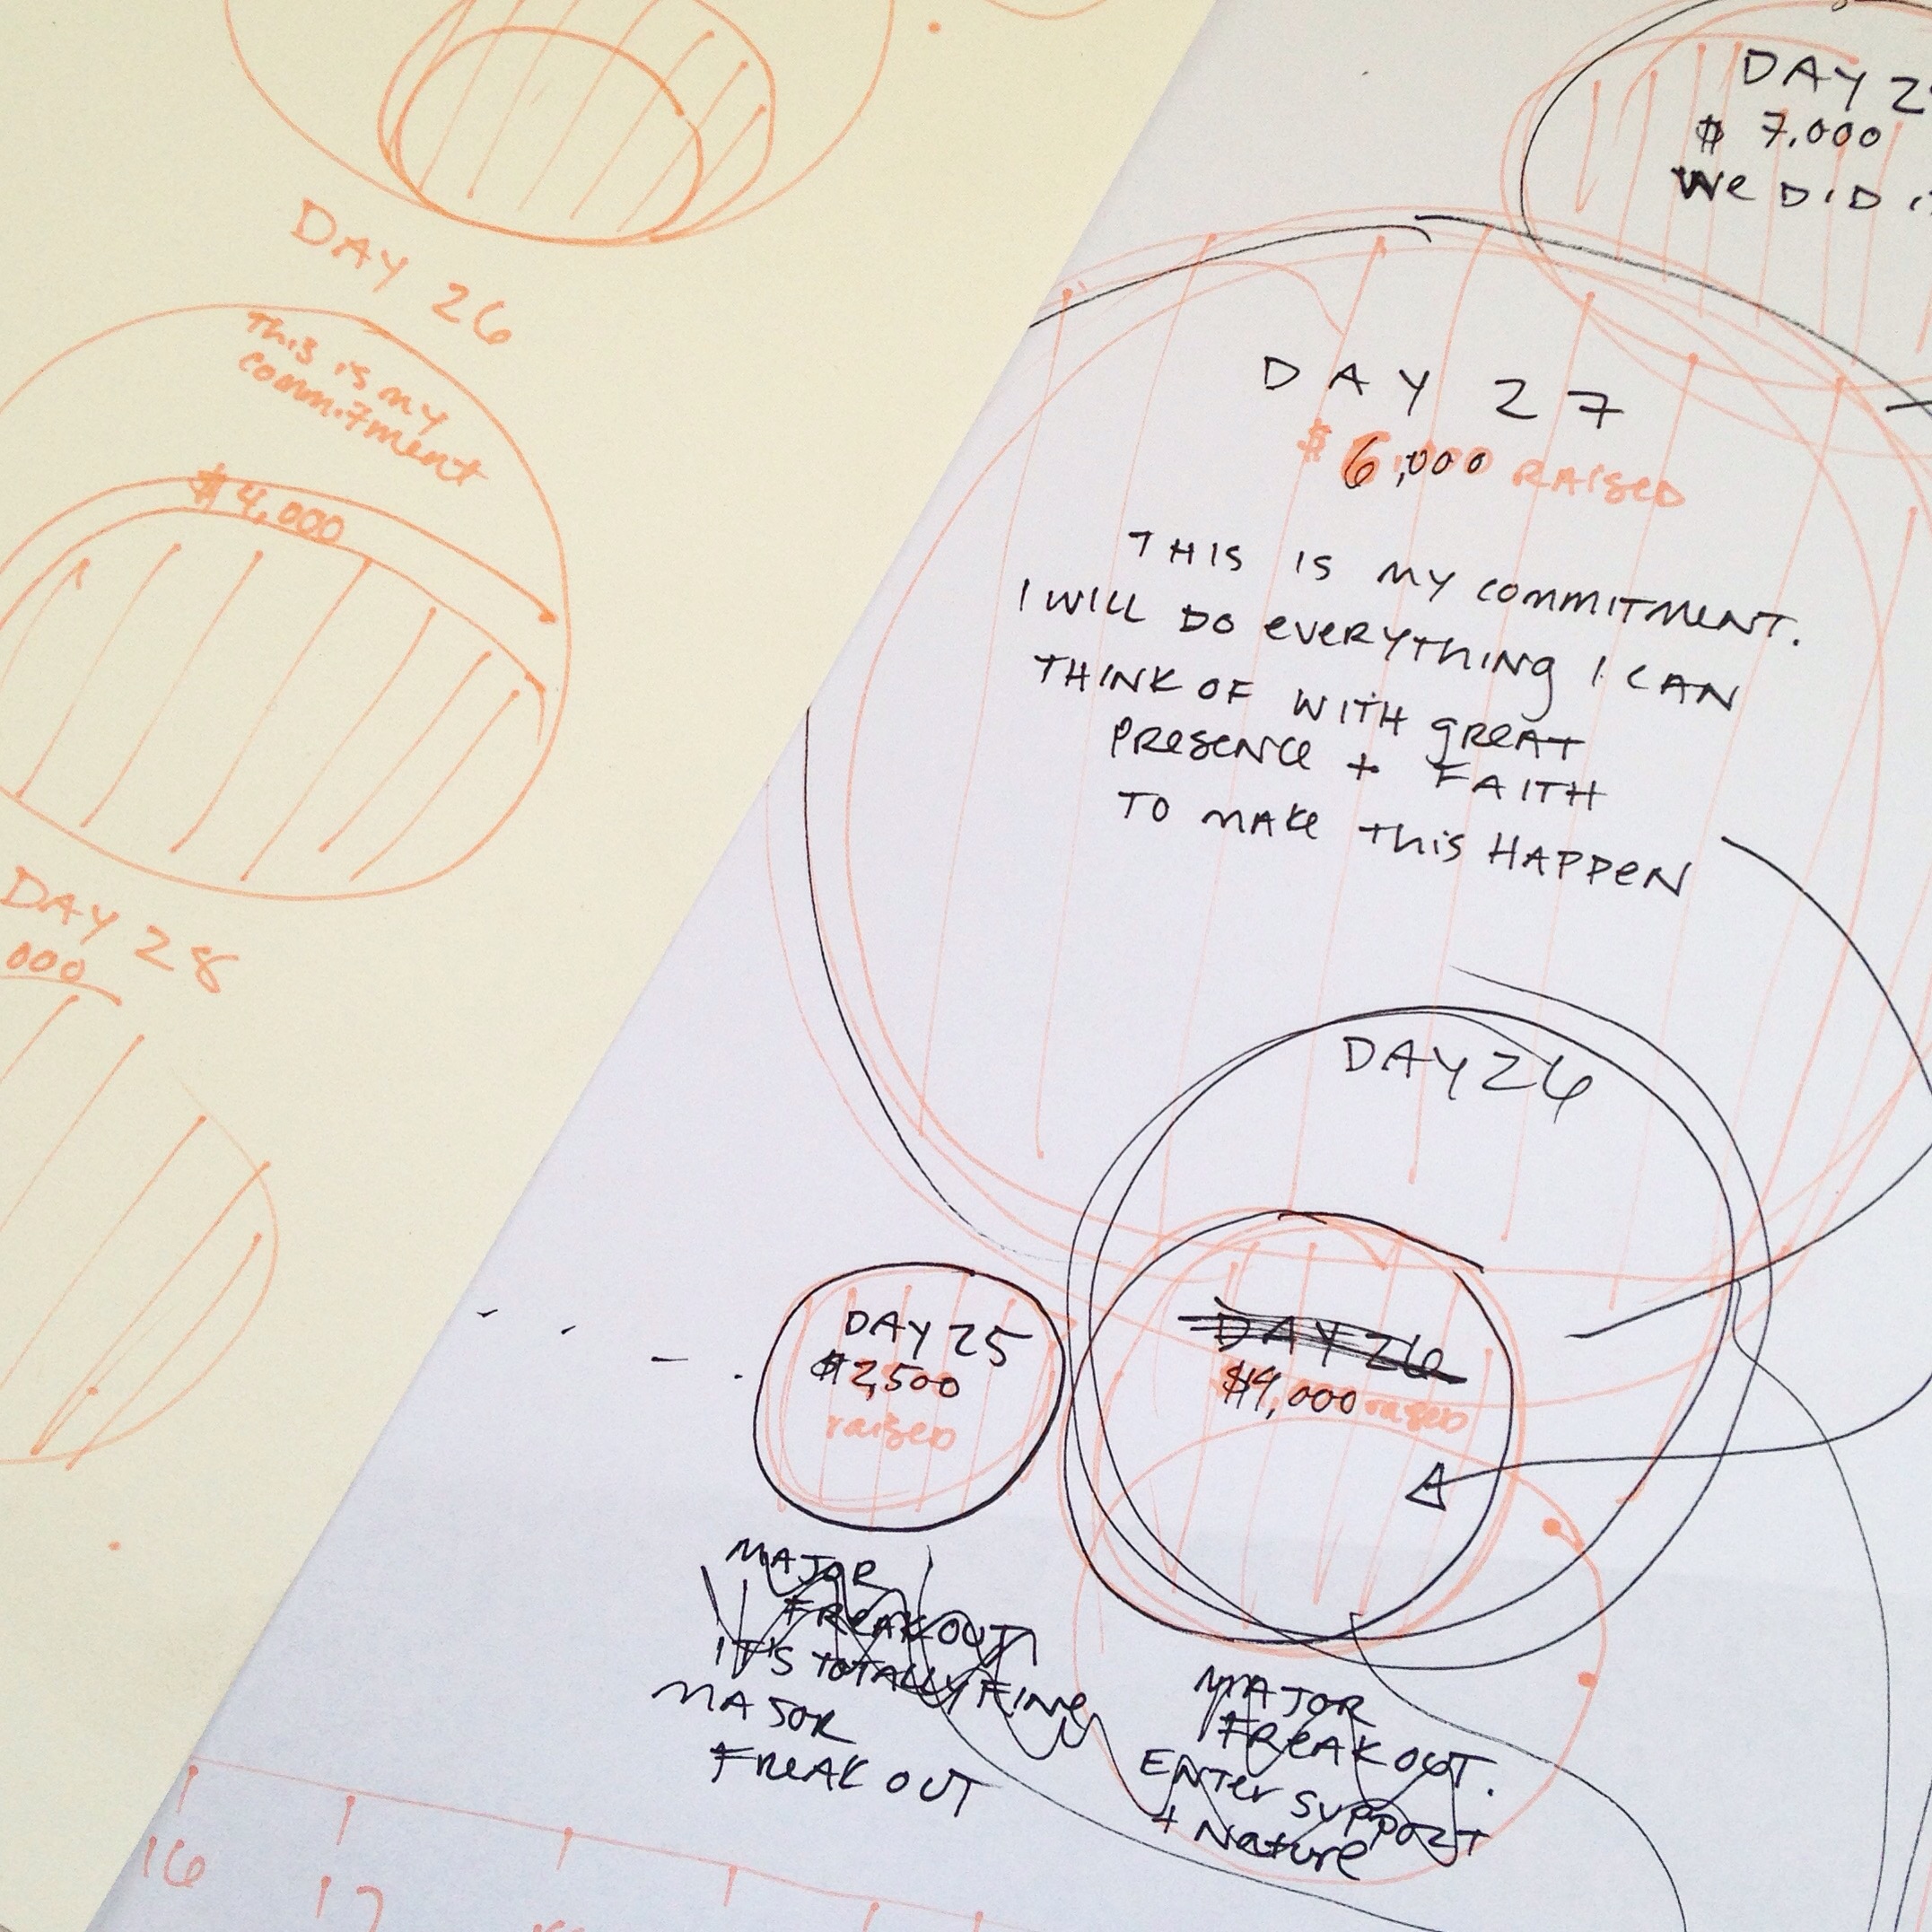 DAY 26
This is my
commitment
$4,000
DAY 28
000
$ 7,000
We DID
DAY 27
$ 6,000 RAISED
THIS IS MY COMMITMENT.
I WILL DO EVERYTHING I CAN
THINK OF WITH GREAT
PRESENCE + FAITH
TO MAKE THIS HAPPEN
DAY 26
DAY 25
$2,500
raised
DAY 26
$4,000 raised
MAJOR
FREAK OUT
IT'S TOTALLY FINE
MAJOR
FREAK OUT
MAJOR
FREAK OUT.
ENTER SUPPORT
+ Nature
16
17